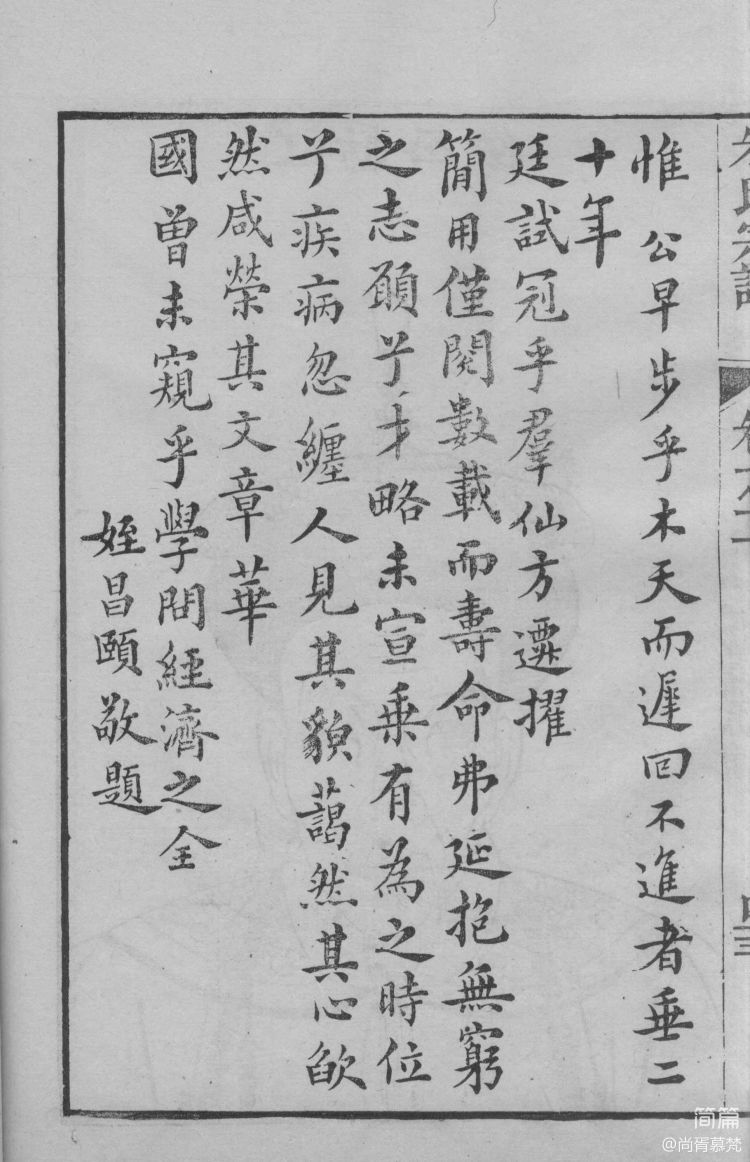 惟 公早步乎木天而遲回不進者垂二
十年
廷試冠乎羣仙方遷擢
簡用僅閱數載而壽命弗延抱無窮
之志願兮才略未宣乗有為之時位
兮疾病忽纏人見其貌藹然其心欿
然咸榮其文章華
國曾未窺乎學問經濟之全
姪昌頤敬題
简篇
@尚胥慕梵